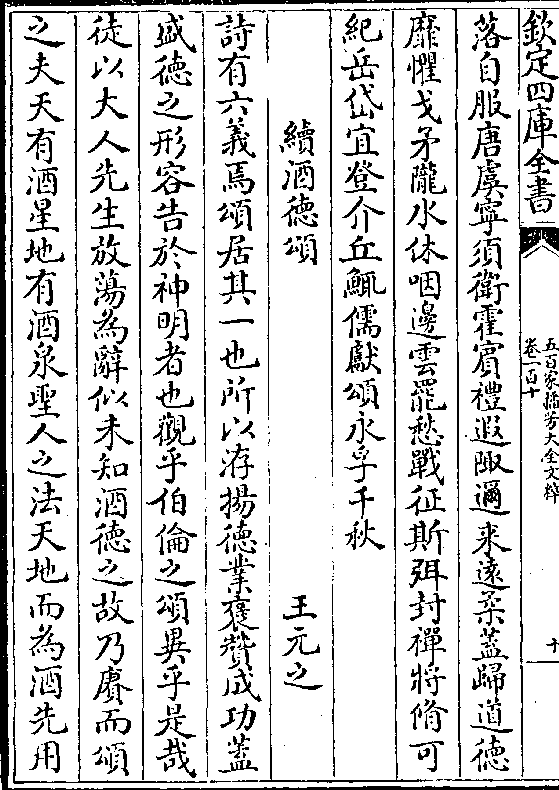 欽定四庫全書
五百家播芳大全文粹
卷一百十
十
落自服唐虞寧須衛霍賓禮遐陬邇来遠柔蓋歸道德
靡懼戈矛隴水休咽邊雲罷愁戰征斯弭封禪將脩可
紀岳岱宜登介丘鯫儒獻頌永孚千秋
續酒德頌
王元之
詩有六義焉頌居其一也所以洊揚德業褒贊成功蓋
盛德之形容告於神明者也觀乎伯倫之頌異乎是哉
徒以大人先生放蕩為辭似未知酒德之故乃賡而頌
之夫天有酒星地有酒泉聖人之法天地而為酒先用